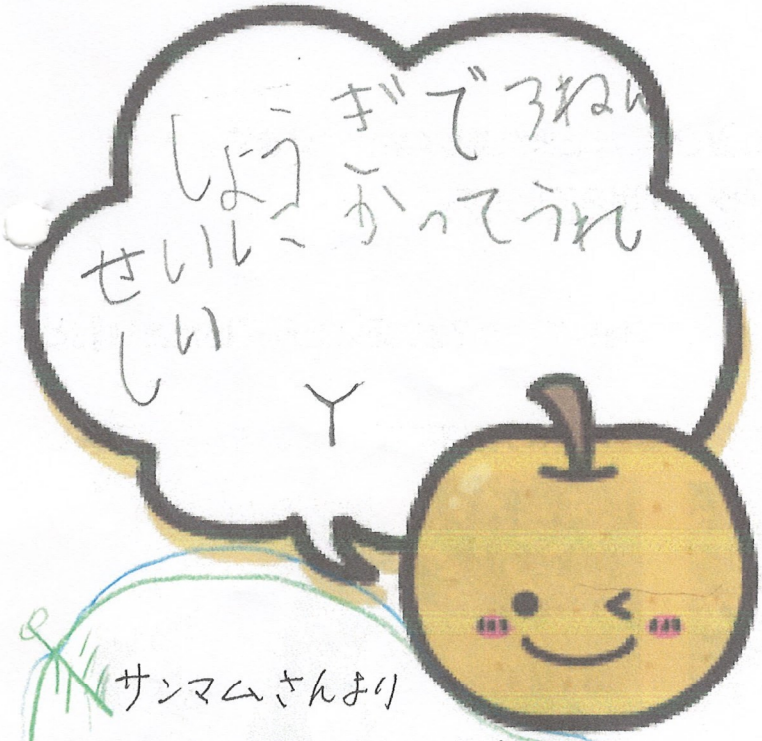 しょうぎで3ねん
せいにかってうれ
しい
Y
サンマムさんより